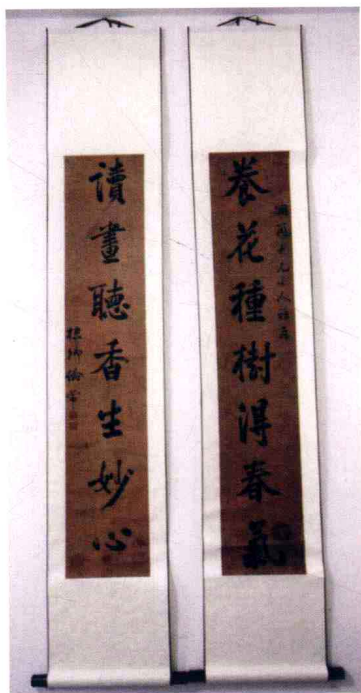 養花種樹得春氣
讀畫聽香生妙心